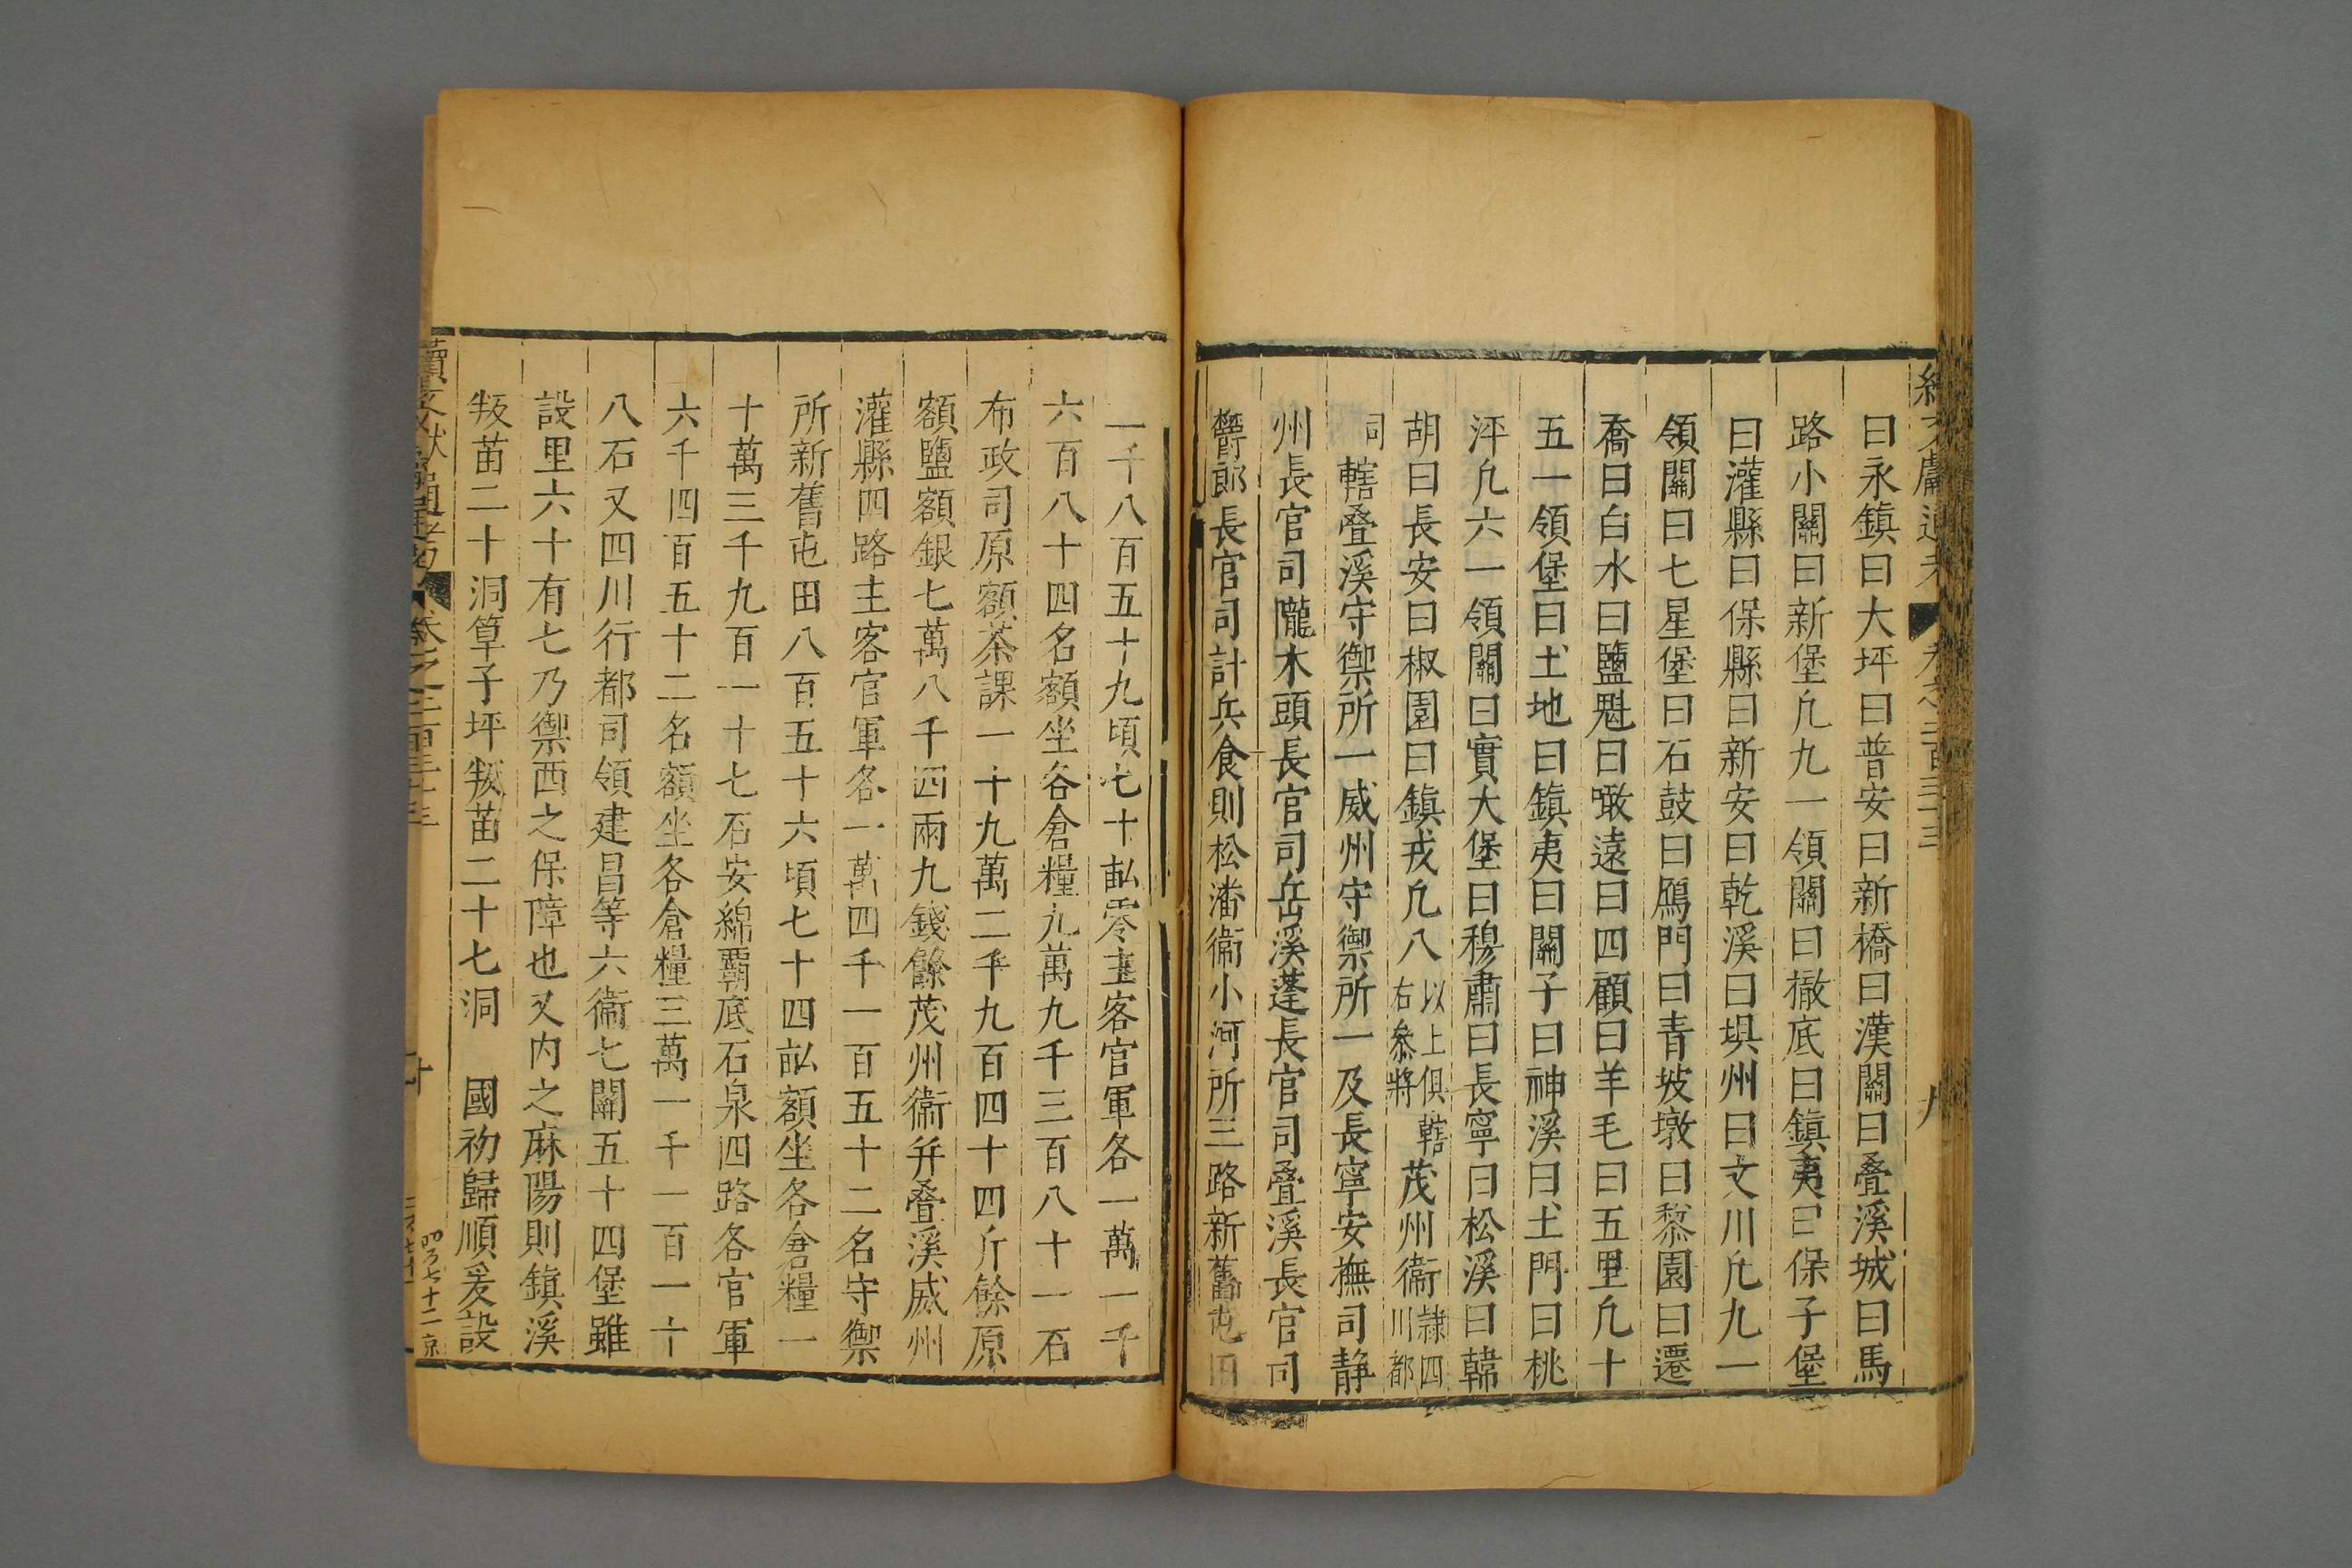 曰永鎮曰大坪曰普安曰新橋曰漢關曰叠溪城曰馬
路小關曰新堡凣九一領關曰撤底曰鎮夷曰保子堡
曰灌縣曰保縣曰新安曰乾溪曰埧州曰文川凣九一
領關曰七星堡曰石鼓曰鴈門曰青坡墩曰黎園曰遷
喬曰白水曰鹽魁曰瞰遠曰四顧曰羊毛曰五里凣十
五一領堡曰土地曰鎮夷曰關子曰神溪曰土門曰桃
泙凣六一領關曰實大堡曰穆肅曰長寧曰松溪曰韓
胡曰長安曰椒園曰鎮戎凣八以上俱轄右叅將茂州衞隷四川都
司轄叠溪守禦所一威州守禦所一及長寧安撫司静
州長官司隴木頭長官司岳溪蓬長官司叠溪長官司
欎郎長官司計兵食則松潘衞小河所三路新舊屯田
一千八百五十九頃七十畆零主客官軍各一萬一千
六百八十四名額坐各倉糧九萬九千三百八十一石
布政司原額茶課一十九萬二千九百四十四斤餘原
額鹽額銀七萬八千四兩九錢餘茂州衞并叠溪威州
灌縣四路主客官軍各一萬四千一百五十二名守禦
所新舊屯田八百五十六頃七十四畆額坐各倉糧一
十萬三千九百一十七石安綿覇底石泉四路各官軍
六千四百五十二名額坐各倉糧三萬一千一百一十
八石又四川行都司領建昌等六衞七關五十四堡雖
設里六十有七乃禦西之保障也又内之麻陽則鎮溪
叛苗二十洞箄子坪叛苗二十七洞　國初歸順爰設
續文獻通考
卷之二百三十三